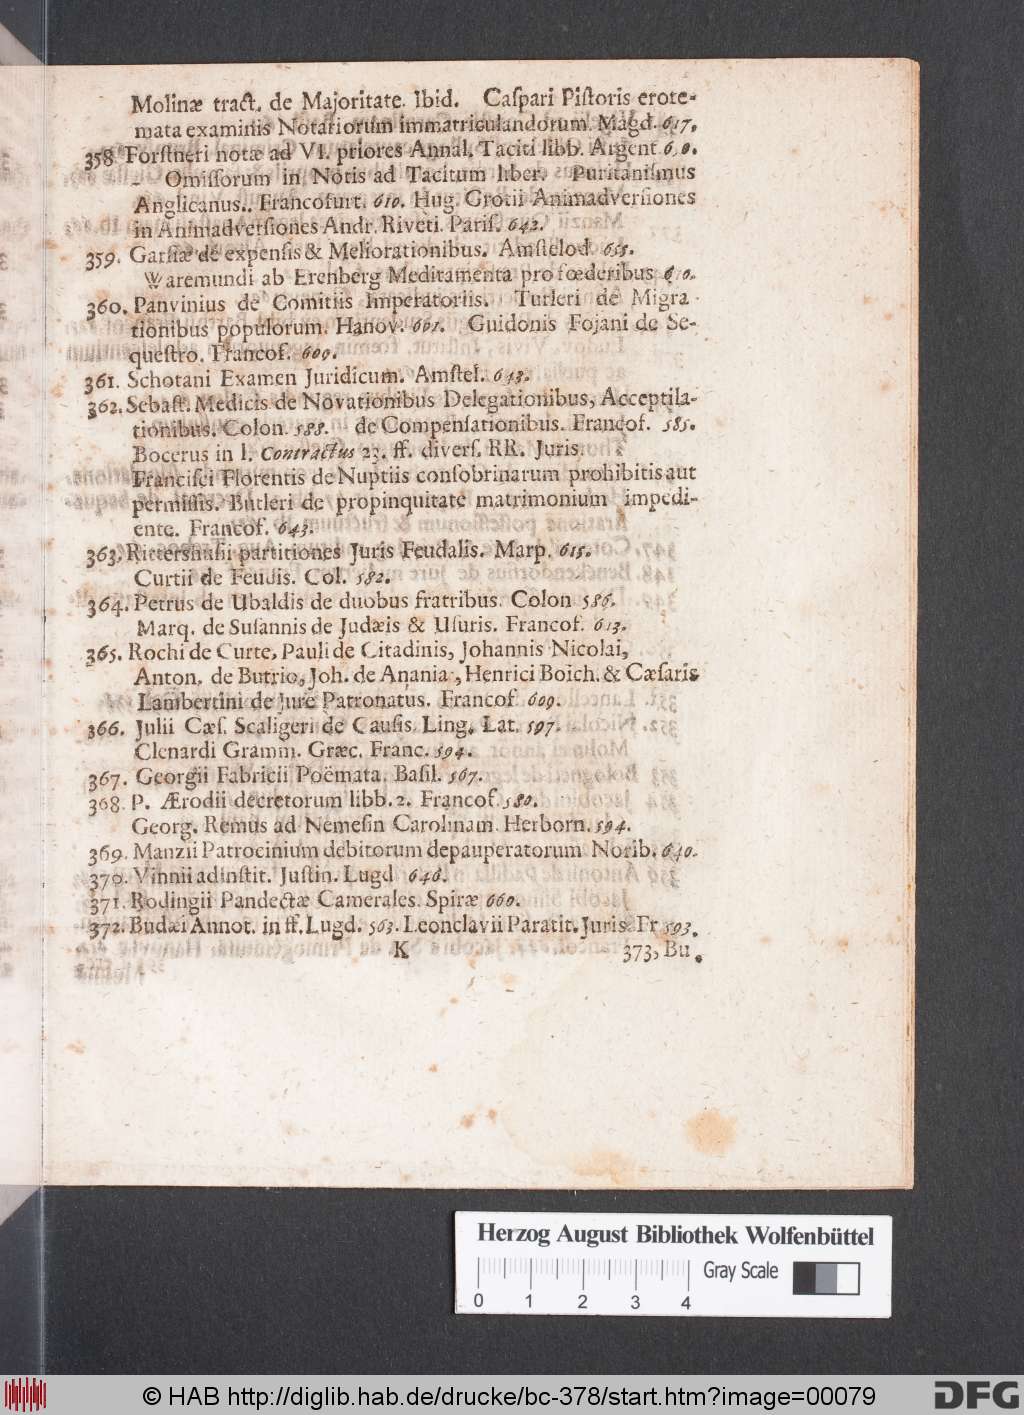 Molinæ tract. de Majoritate. Ibid. Caſpari Piſtoris erote-
mata examinis Notariorum immatriculandorum. Magd. 617.
358. Forſtneri notæ ad VI. priores Annal. Taciti libb. Argent.
- Omiſſorum in Notis ad Tacitum liber. Puritaniſmus
Anglicanus.. Francofurt. 610. Hug. Grotii Animadverſiones
in Animadverſiones Andr. Riveti. Pariſ. 642.
359. Garſiæ de expenſis & Meliorationibus. Amſtelod. 655.
Waremundi ab Erenberg Meditamenta pro fœderibus
360. Panvinius de Comitiis Imperatoriis. Turleri de Migra-
tionibus populorum. Hanov. 601. Guidonis Fojani de Se-
queſtro. Francof. 609.
361. Schotani Examen Juridicum. Amſtel. 643.
362. Sebaſt. Medicis de Novationibus Delegationibus, Acceptila-
tionibus. Colon. 588. de Compenſationibus. Francof. 585.
Bocerus in l. Contractus 23. ff. diverſ. RR. Juris.
Franciſci Florentis de Nuptiis conſobrinarum prohibitis aut
permiſſis. Butleri de propinquitate matrimonium impedi-
ente. Francof. 643.
363. Rittershuſii partitiones Juris Feudalis. Marp. 615.
Curtii de Feudis. Col. 582.
364. Petrus de Ubaldis de duobus fratribus. Colon 586.
Marq. de Suſannis de Judæis & Uſuris. Francof. 613.
365. Rochi de Curte, Pauli de Citadinis, Johannis Nicolai,
Anton. de Butrio, Joh. de Anania, Henrici Boich. & Cæſaris
Lambertini de Jure Patronatus. Francof. 609.
366. Julii Cæſ. Scaligeri de Cauſis. Ling. Lat. 597.
Clenardi Gramm. Græc. Franc. 594.
367. Georgii Fabricii Poëmata. Baſil. 567.
368. P. Ærodii decretorum libb. 2. Francof. 580.
Georg. Remus ad Nemeſin Carolinam. Herborn. 594.
369. Manzii Patrocinium debitorum depauperatorum Norib. 640.
370. Vinnii ad inſtit. Juſtin. Lugd 646.
371. Rodingii Pandectæ Camerales. Spiræ 660.
372. Budæi Annot. in ff. Lugd. 563. Leonclavii Paratit. Juris Fr 593.
K 373, Bu.
Herzog August Bibliothek Wolfenbüttel
Gray Scale
0 1 2 3 4
© HAB http://diglib.hab.de/drucke/bc-378/start.htm?image=00079
DFG